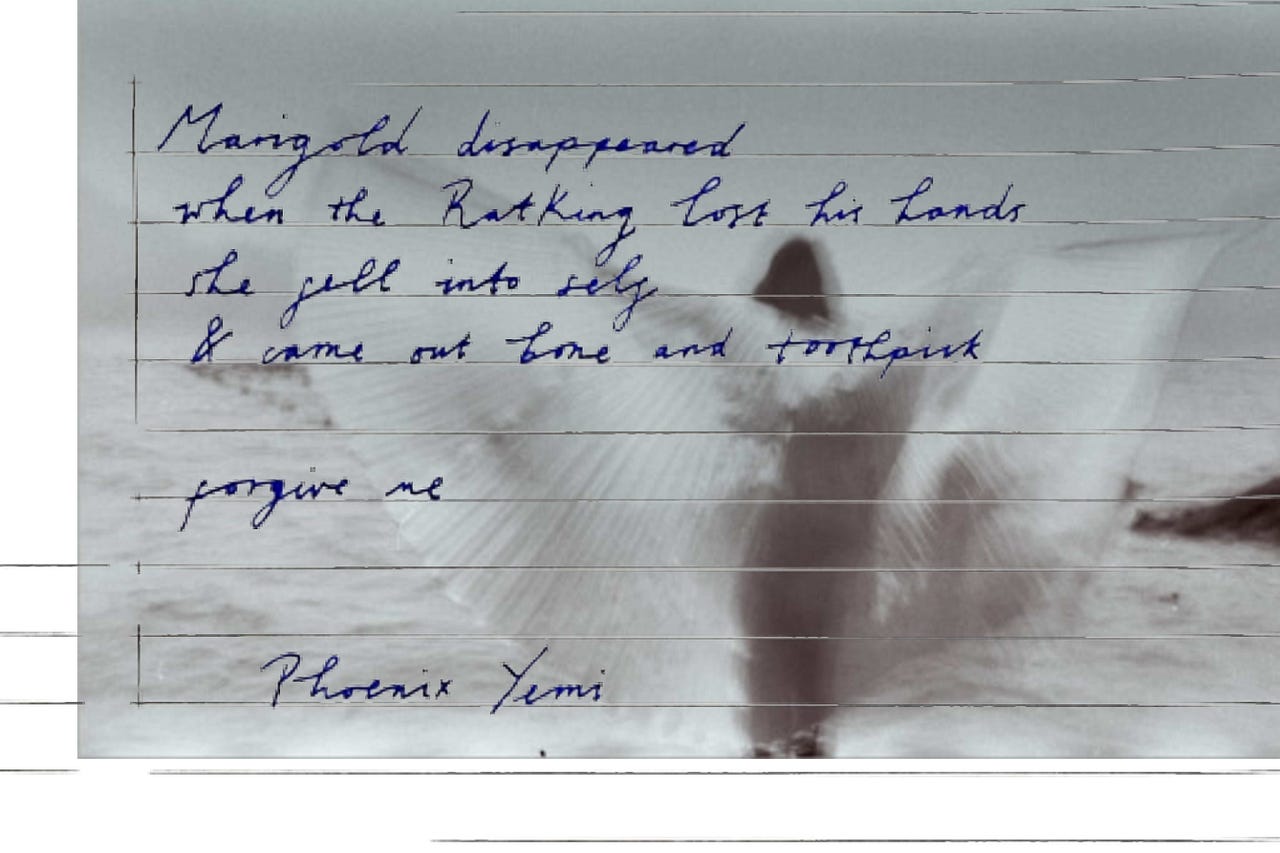 Marigold disappeared
when the RatKing lost his hands
she fell into self
& came out bone and toothpick
forgive me
Phoenix Yemi